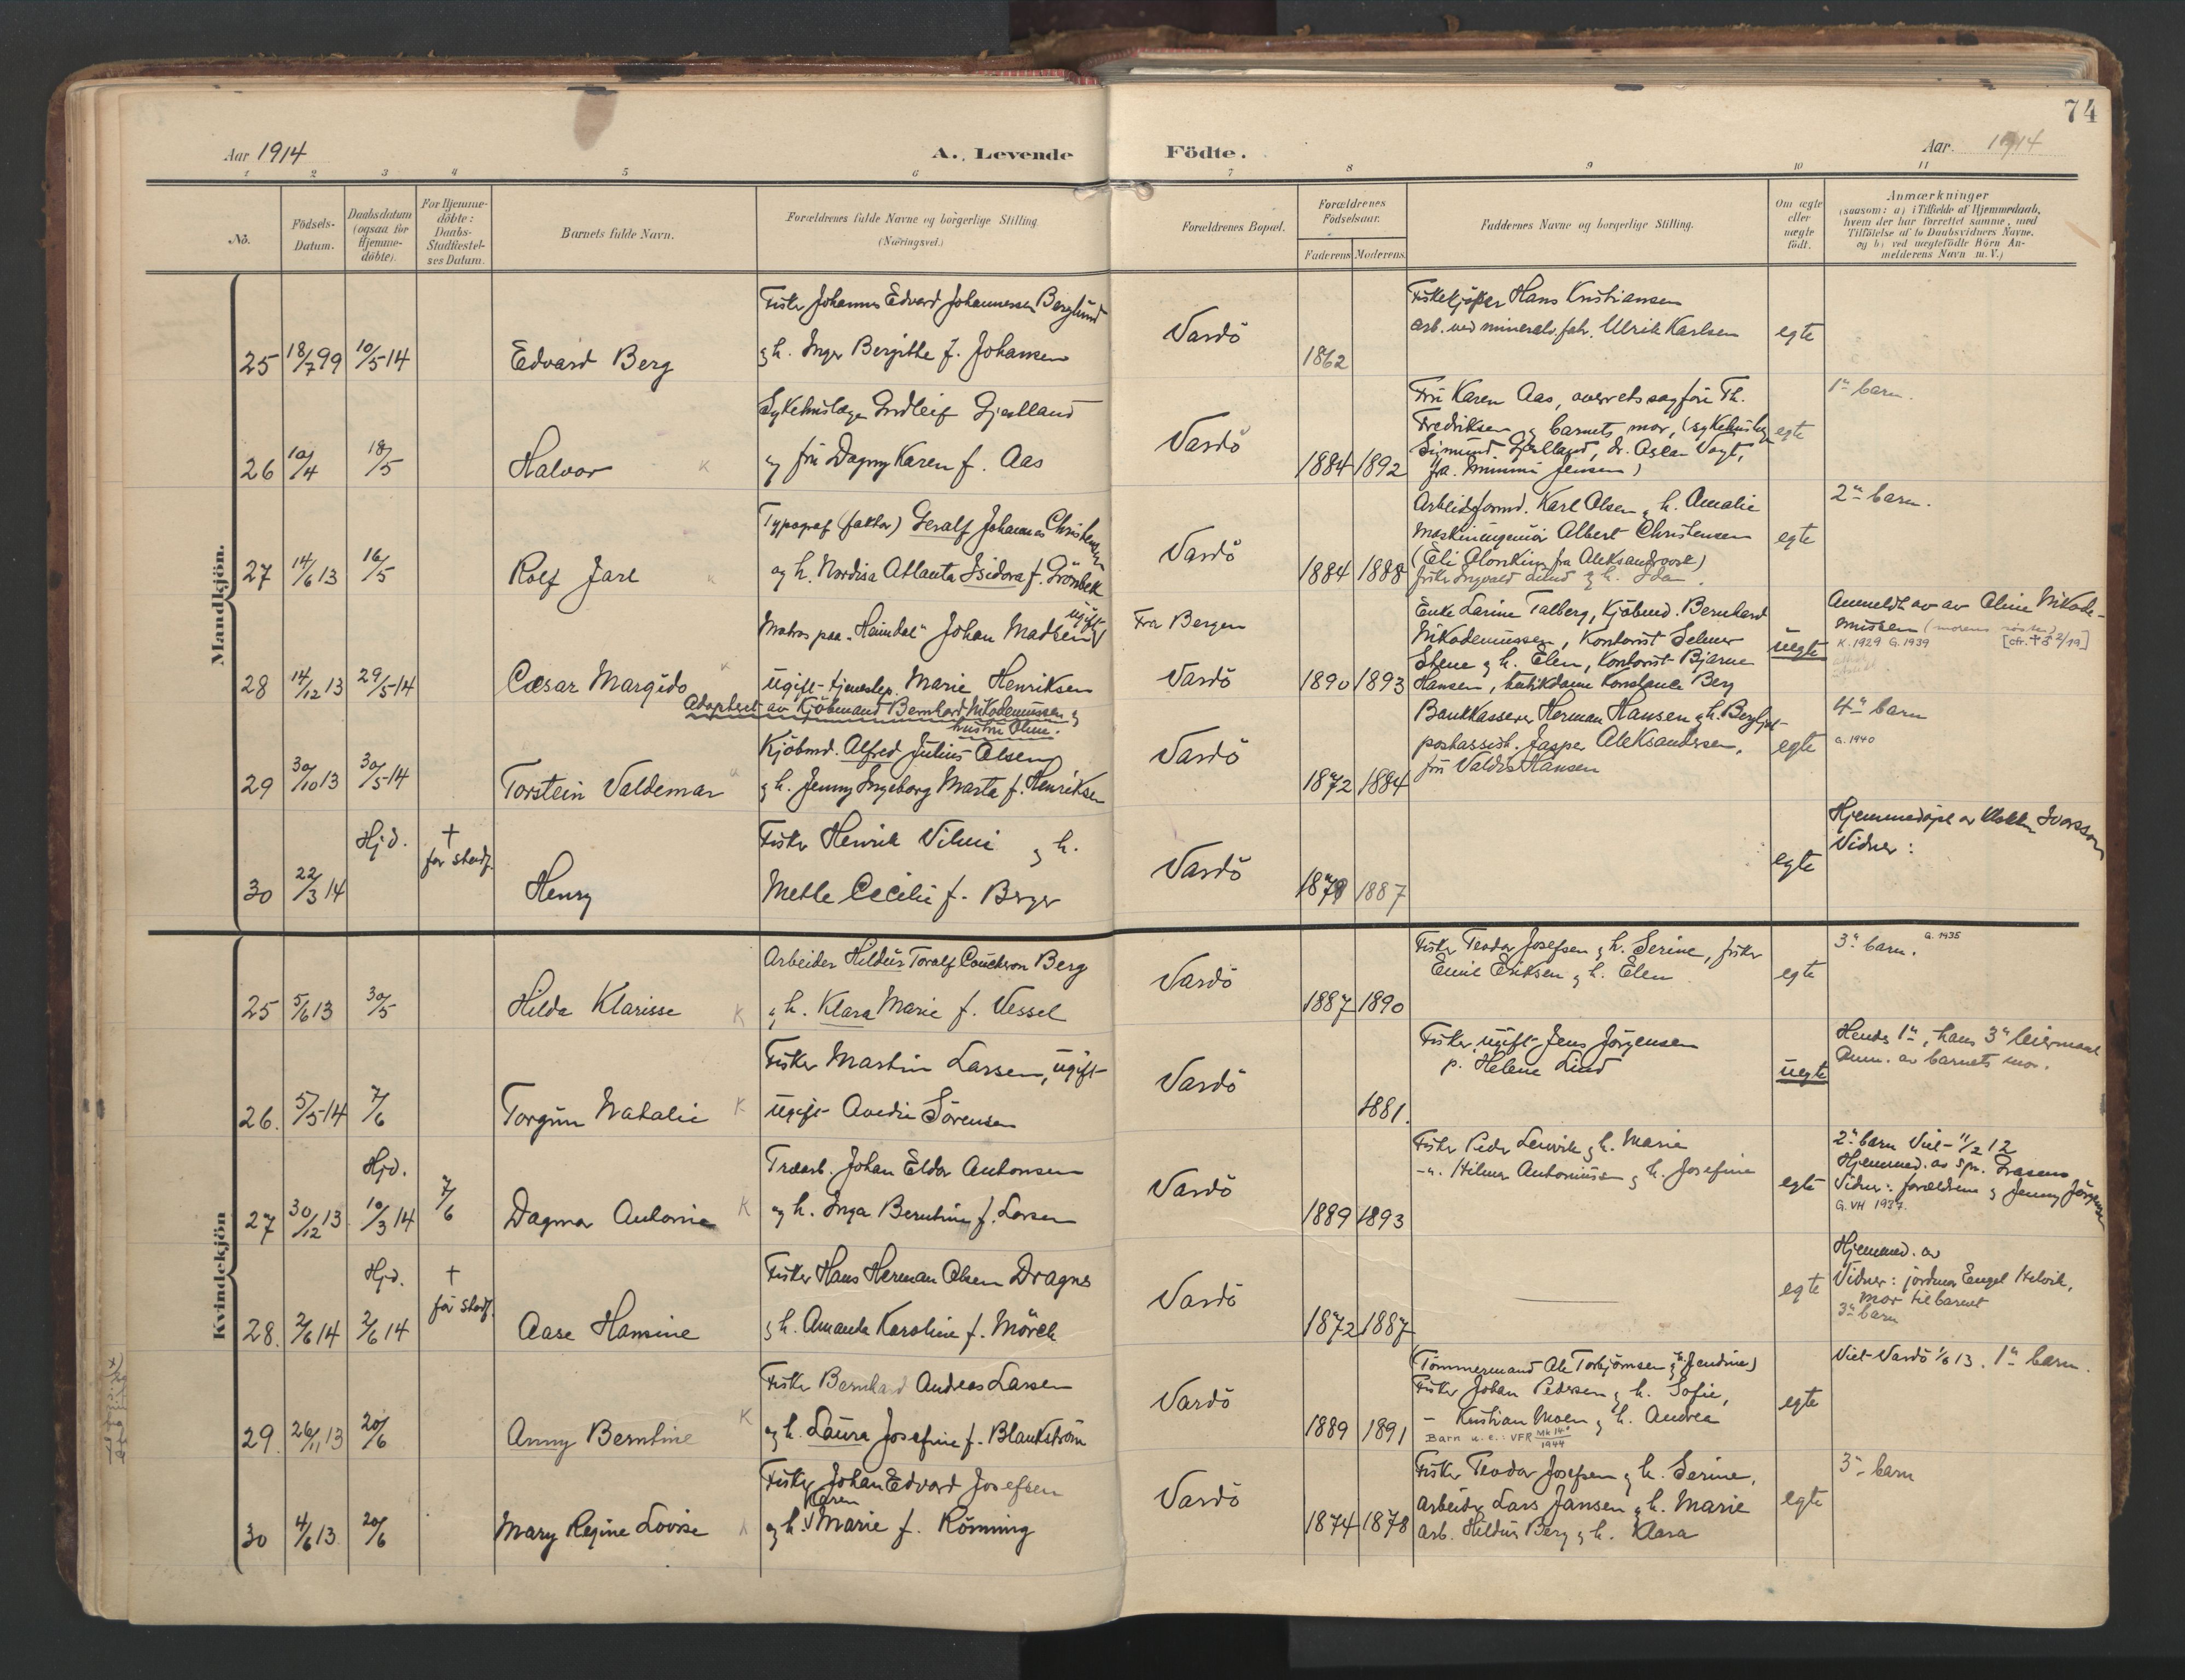 74
Aar 1914
A. Levende Födte.
Aar. 1914
1 2 3 4 5 6 7 8 9 10 11
No.
Födsels-
Datum.
Daabsdatum
(ogsaa for
Hjemme-
döbte).
For Hjemme-
döbte:
Daabs-
Stadfæstel-
ses Datum.
Barnets fulde Navn.
Forældrenes fulde Navne og borgerlige Stilling.
(Næringsvei.)
Forældrenes Bopæl.
Forældrenes
Födselsaar.
Faderens Moderens.
Faddernes Navne og borgerlige Stilling.
Om ægte
eller
uægte
födt.
Anmærkninger
(saasom: a) i Tilfælde af Hjemmedaab,
hvem der har forrettet samme, med
Tilföielse af to Daabsvidners Navne,
og b) ved uægtefödte Börn An-
melderens Navn m. V.)
Mandkjön.
25 18/7 99 10/5-14 Edvard Berg
Fisker Johannes Edvard Johannessen Berglund
og h. Inger Bergithe f. Johansen
Vardö 1862
Fiskekjöper Hans Kristiansen
arb. ved minerals.fabr. Ulrik Karlsen
egte
26 10/4 18/5 Halvor K
Sykehuslæge Gudleif Gjestland
og fru Dagny Karen f. Aas
Vardö 1884 1892
Fru Karen Aas, overretssagförer Th.
Fredriksen og barnets mor, (sykehuslæge
Sigmund Gjestland, dr. Aslau Vogt,
fra. Mimmi Jensen)
egte
1ste barn.
27 14/6 13 16/5 Rolf Jarl K
Typograf (faktor) Geralf Johannes Christensen
og h. Nordisa Atlanta Isidora f. Grönbek
Vardö 1884 1888
Arbeidsformd. Karl Olsen og h. Amalie
Maskiningeniör Albert Christensen
fisker Ingvald Lund og h. Ida.
egte
2det barn.
28 14/12 13 29/5-14 Cæsar Margido K
Matros paa "Heimdal" Johan Madsen ugift
ugift tjenestep. Marie Henriksen
Adoptert av Kjöbmand Bernhard Nikodemussen og
hustru Oline.
Fra Bergen
Vardö 1890 1893
Enke Larine Talberg, Kjöbmd. Bernhard
Nikodemussen, Kontorist Selmer
Stene og h. Elen, Kontorist Bjarne
Hansen, butikdame Konstance Berg
uegte
Anmeldt av av Oline Nikode-
mussen (morens söster)
K. 1929 G. 1939
29 30/10 13 30/5-14 Torstein Valdemar
Kjöbmd. Alfred Julius Olsen
og h. Jenny Ingeborg Marta f. Henriksen
Vardö 1872 1884
Bankkasserer Herman Hansen og h. Bergljot
postassist. Jasper Aleksandersen,
fru Valdis Hansen
egte
4de barn
G. 1940
30 22/3 14 Hjd. † for stadf. Henry
Fisker Henrik Vilmi og h.
Mette Cecilie f. Berger
Vardö 1878 1887
egte
Hjemmedöpt av klokker Ivarsson
Vidner:
Kvindekjön
25 5/6 13 30/5 Hilda Klarisse K
Arbeider Hildus Toralf Berg
og h. Klara Marie f. Vessel
Vardö 1887 1890
Fisker Teodor Josefsen og h. Serine, fisker
Emil Eriksen og h. Elen
egte
3die barn. G. 1935
26. 5/5-14 7/6 Torgun Natalie K
Fisker Martin Larsen, ugift
ugift Avedie Sörensen
Vardö 1881.
Fisker ugift Jens Jörgensen
p. Helene Lind
uegte
Hendes 1ste, hans 3die leiermaal
Anm. av barnets mor.
27 30/12 13. Hjd. 10/3 14 7/6 Dagmar Antonie K
Træarb. Johan Eldor Antonsen
og h. Inga Berntine f. Larsen
Vardö 1889 1893
Fisker Peder Lervik og h. Marie
-"- Hilmer Antoniussen og h. Josefine
egte
2det barn Viet 11/2 12
Hjemmed. av spr. Grasmo
Vidner: forældrene og Jenny Jörgensen
G. VH 1937.
28. 2/6 14 Hjd. 2/6 14 † för stadf. Aase Hansine
Fisker Hans Herman Olsen Dragnes
og h. Amanda Karoline f. Mörch
Vardö 1872 1887
egte
Hjemmed. av
Vidner: jordmor Engel Helvik,
mor til barnet
3die barn
29. 26/11 13 20/6 Anny Berntine K
Fisker Bernhard Andreas Larsen
og h. Laura Josefine f. Blankström
Vardö 1889 1891
(Tömmermand Ole Torbjörnsen og h. Jendine)
Fisker Johan Pedersen og h. Sofie,
- Kristian Moen og h. Andrea
Barn u.e.: VFR Mk 14/1944
egte
Viet Vardö 1/6 13. 1ste barn.
30 4/6 13 20/6 Mary Regine Lovise K
Fisker Johan Edvard Josefsen
og h. Karen Marie f. Rönning
Vardö 1874 1878
Fisker Teodor Josefsen og h. Serine,
Arbeider Lars Jansen og h. Marie
Arb. Hildus Berg og h. Klara
egte
3die barn